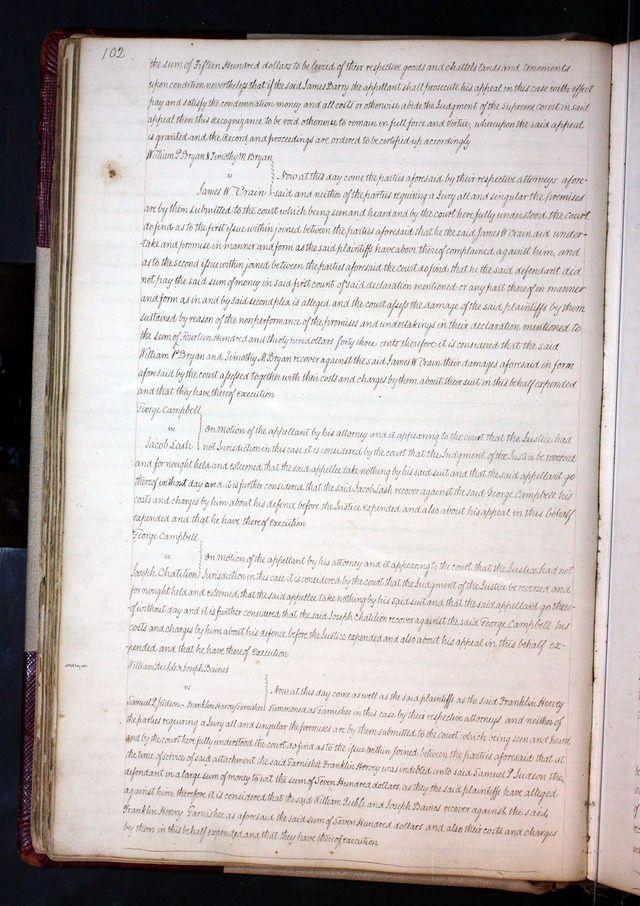 102
the sum of Fifteen Hundred dollars to be levied of their respective goods and chattels lands and tenements
upon condition nevertheless that if the said James Barry the appellant shall prosecute his appeal in this case with effect
pay and satisfy the condemnation money and all costs or otherwise abide the Judgment of the Supreme Court in said
appeal then this recognizance to be void otherwise to remain in full force and virtue, whereupon the said appeal
is granted and the record and proceedings are ordered to be certified up accordingly
William P. Bryan & Timothy M. Bryan
vs
Now at this day come the parties aforesaid by their respective attorneys afore-
James W. Crain
said and neither of the parties requiring a Jury all and singular the premises
are by them submitted to the court which being seen and heard and by the court here fully understood the Court
do find as to the first issue within joined between the parties aforesaid that he the said James W Crain did under-
take and promise in manner and form as the said plaintiffs have above thereof complained against him, and
as to the second issue within joined between the parties aforesaid the court do find that he the said defendant did
not pay the said sum of money in said first count of said declaration mentioned or any part thereof in manner
and form as in and by said second plea is alleged and the court assess the damage of the said plaintiffs by them
sustained by reason of the nonperformance of the promises and undertakings in their declaration mentioned to
the sum of Fourteen Hundred and thirty nine dollars forty three cents therefore it is considered that the said
William P. Bryan and Timothy M. Bryan recover against the said James W Crain their damages aforesaid in form
aforesaid by the court assessed together with their costs and charges by them about their suit in this behalf expended
and that they have thereof execution
George Campbell
vs
On motion of the appellant by his attorney and it appearing to the court that the Justice had
Jacob Lash
not Jurisdiction in this case it is considered by the court that the Judgment of the Justice be reversed
and for nought held and esteemed that the said appellee take nothing by his said suit and that the said appellant go
thereof without day and it is further considered that the said Jacob Lash recover against the said George Campbell his
costs and charges by him about his defence before the Justice expended and also about his appeal in this behalf
expended and that he have thereof execution
George Campbell
vs
On motion of the appellant by his attorney and it appearing to the court that the Justice had not
Joseph Chatilion
Jurisdiction in this case it is considered by the court that the Judgment of the Justice be reversed and
for nought held and esteemed that the said appellee take nothing by his said suit and that the said appellant go there-
of without day and it is further considered that the said Joseph Chatilion recover against the said George Campbell his
costs and charges by him about his defence before the Justice expended and also about his appeal in this behalf ex-
pended and that he have thereof execution
William Riehle & Joseph Baines
vs
Now at this day come as well as the said plaintiffs as the said Franklin Hervey
Samuel P. Judson - Franklin Hervey Garnishee
summoned as Garnishee in this case by their respective attorneys and neither of
the parties requiring a Jury all and singular the premises are by them submitted to the court which being seen and heard
and by the court here fully understood the court do find as to the issue within joined between the parties aforesaid that at
the time of service of said attachment the said Garnishee Franklin Hervey was indebted unto said Samuel P Judson the
defendant in a large sum of money to wit the sum of Seven Hundred dollars as they the said plaintiffs have alleged
against him, therefore it is considered that the said William Riehle and Joseph Baines recover against the said
Franklin Hervey Garnishee as aforesaid the said sum of Seven Hundred dollars and also their costs and charges
by them in this behalf expended and that they have thereof execution